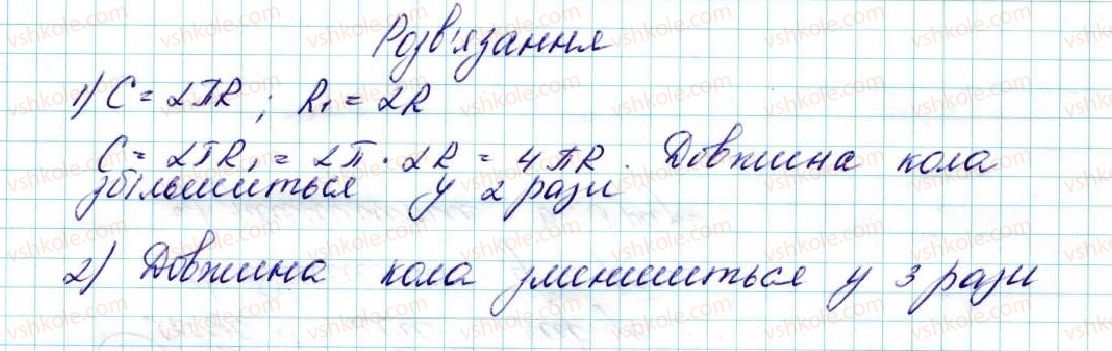 Розв'язання
1) C = 2πR ; R₁ = 2R
C = 2πR₁ = 2π · 2R = 4πR. Довжина кола
збільшиться у 2 рази
2) Довжина кола зменшиться у 3 рази